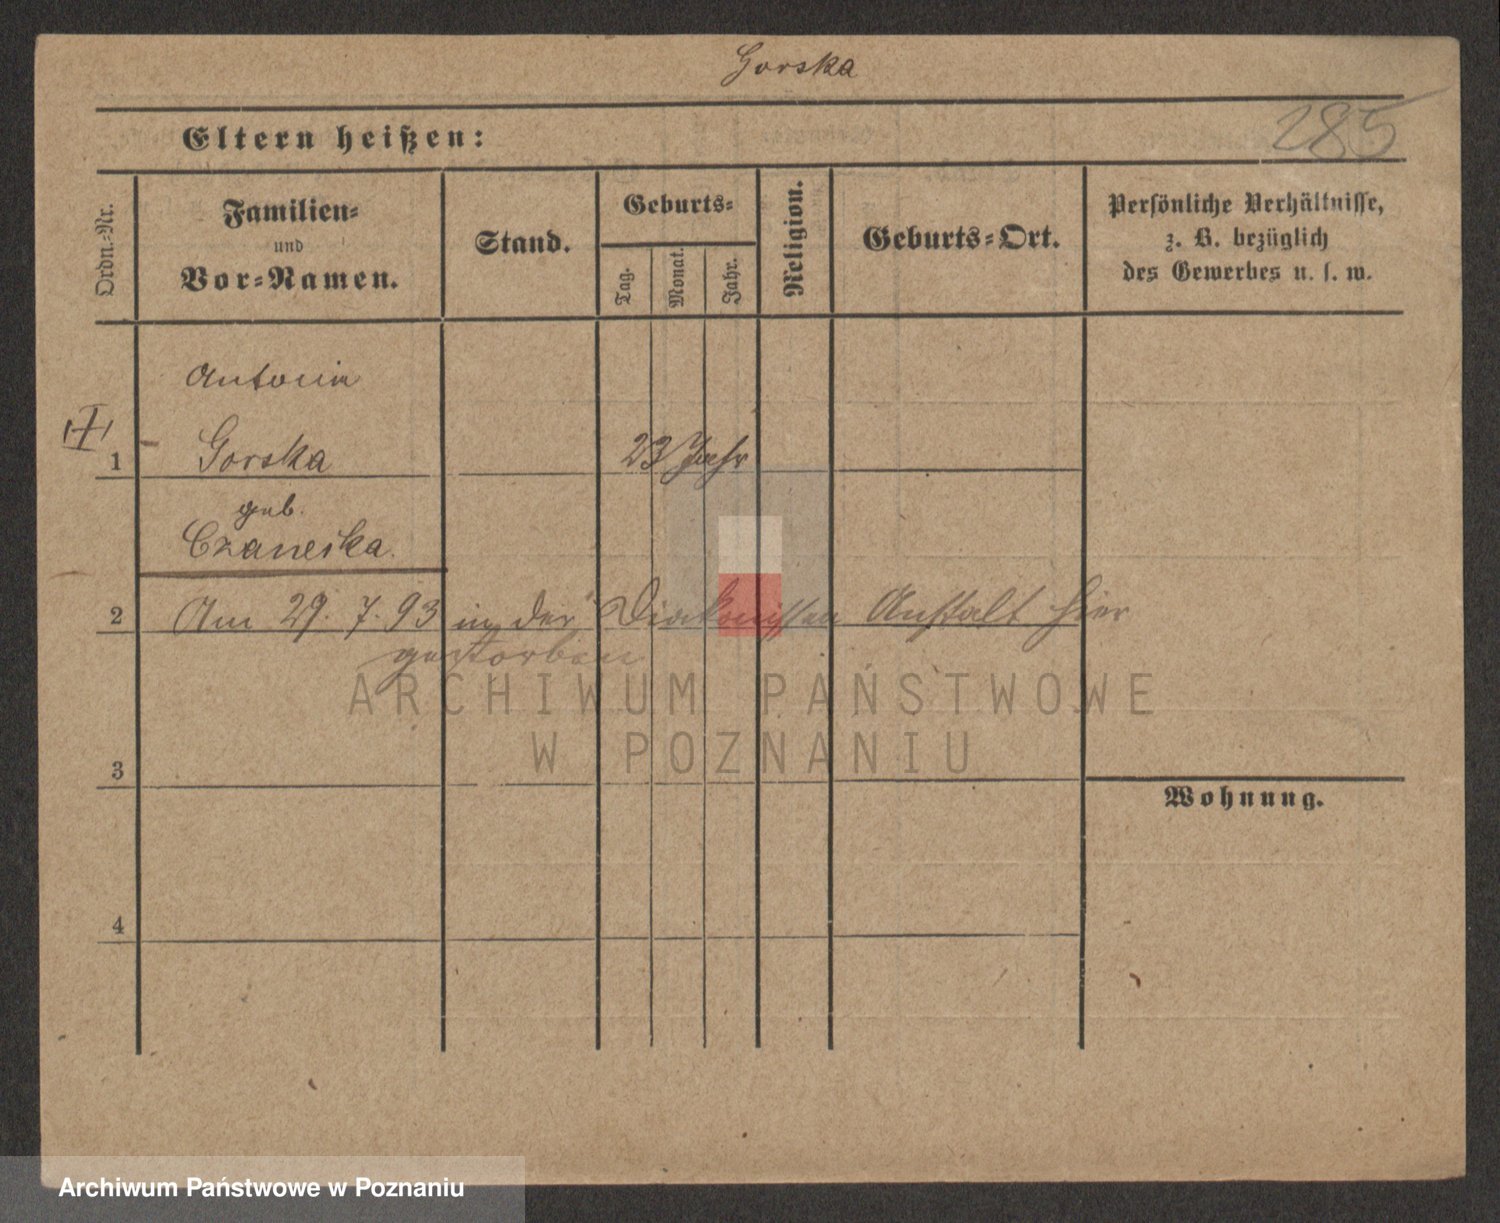 Gorska
285
Eltern heißen:
Ordn.-Nr.
Familien-
und
Vor-Namen.
Stand.
Geburts-
Tag.
Monat.
Jahr.
Religion.
Geburts-Ort.
Persönliche Verhältnisse,
z. B. bezüglich
des Gewerbes u. s. w.
Antonia
1 Gorska 23 Jahr
geb.
Czaneska.
2 Am 29. 7. 93 in der Diakonissen Anstalt hier
gestorben
ARCHIWUM PAŃSTWOWE
W POZNANIU
3
Wohnung.
4
Archiwum Państwowe w Poznaniu